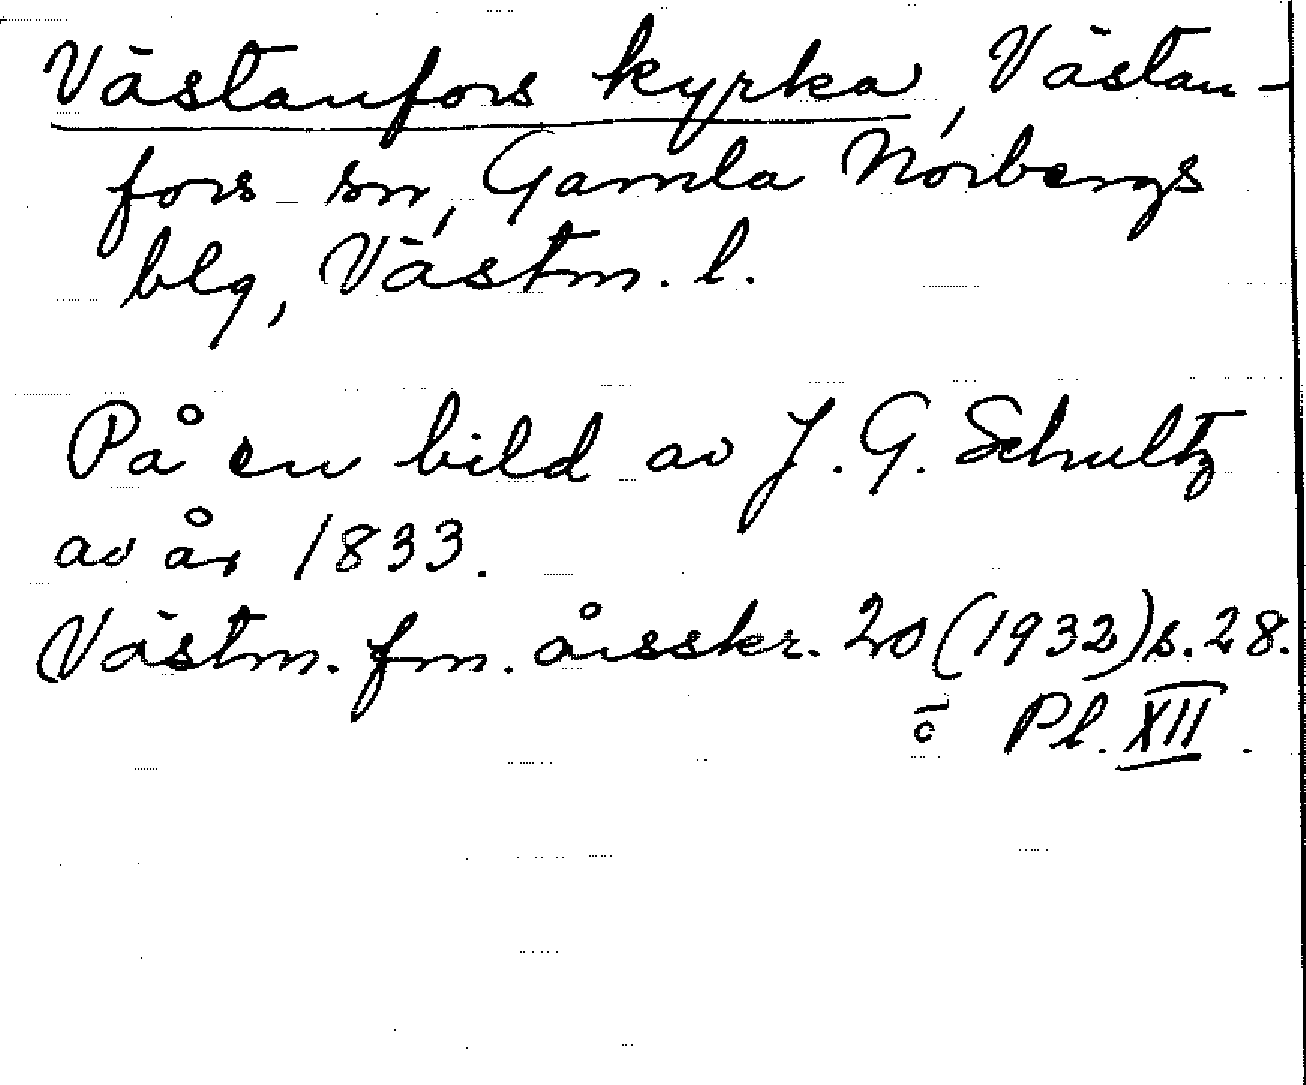 Västanfors kyrka, Västan-
fors sn, Gamla Norbergs
blg, Västm. l.
På en bild av J. G. Schultz
av år 1833.
Västm. fm. årsskr. 20 (1932) s. 28.
o Pl. XII.